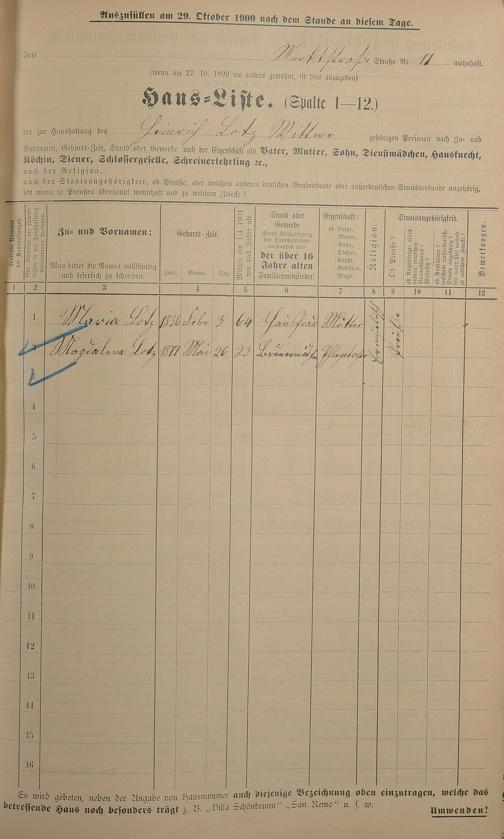 Auszufüllen am 29. Oktober 1900 nach dem Stande an diesem Tage.
Jetzt Marktstraße Straße Nr. 11 wohnhaft.
(wenn am 27. 10. 1899 wo anders gewohnt, ist dies anzugeben)
Haus-Liste. (Spalte 1—12.)
der zur Haushaltung des Heinrich Lotz Wittwe gehörigen Personen nach Zu- und
Vornamen, Geburts-Zeit, Stand oder Gewerbe, nach der Eigenschaft als Vater, Mutter, Sohn, Dienstmädchen, Hausknecht,
Köchin, Diener, Schlossergeselle, Schreinerlehrling ꝛc.,
nach der Religion,
nach der Staatsangehörigkeit, ob Preuße, oder welchem anderen deutschen Bundesstaate oder außerdeutschen Staatsverbande angehörig,
seit wann in Preußen überhaupt wohnhaft und zu welchem Zwecke?
Zu- und Vornamen:
Man bittet die Namen vollständig
und leserlich zu schreiben.
Geburts-Zeit.
Jahr. Monat. Tag.
Stand oder
Gewerbe
der über 16
Jahre alten
Familienmitglieder.
Eigenschaft:
ob Vater,
Mutter,
Sohn,
Tochter,
Knecht,
Geselle u.
Magd.
Religion.
Staatsangehörigkeit.
Ob Preuße?
Bemerkungen.
1 2 3 4 5 6 7 8 9 10 11 12
1 Maria Lotz 1836 Febr 3 64 Hausfrau Mutter
Magdalena Lotz 1877 Mai 26 23
4
5
6
7
8
9
10
11
12
13
14
15
16
Es wird gebeten, neben der Angabe von Hausnummer auch diejenige Bezeichnung oben einzutragen, welche das
betreffende Haus noch besonders trägt z. B. „Villa Schönbrunn" „San Remo" u. s. w. Umwenden!